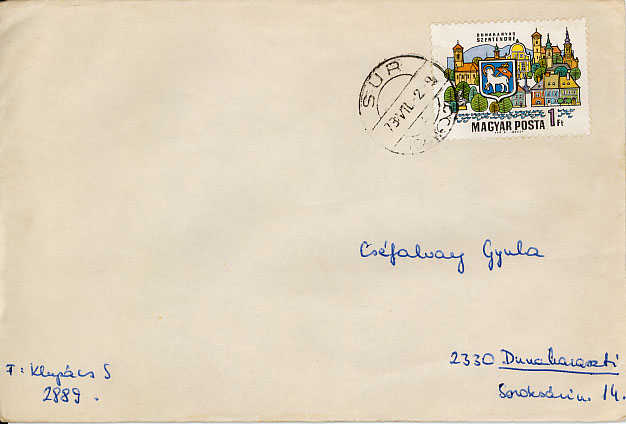 DUNAKANYAR
SZENTENDRE
MAGYAR POSTA 1 Ft
SUR
73 VII.-2. 9
Cséfalvay Gyula
2330 Dunaharaszti
Soroksári u. 14.
F: Klupács S
2889.